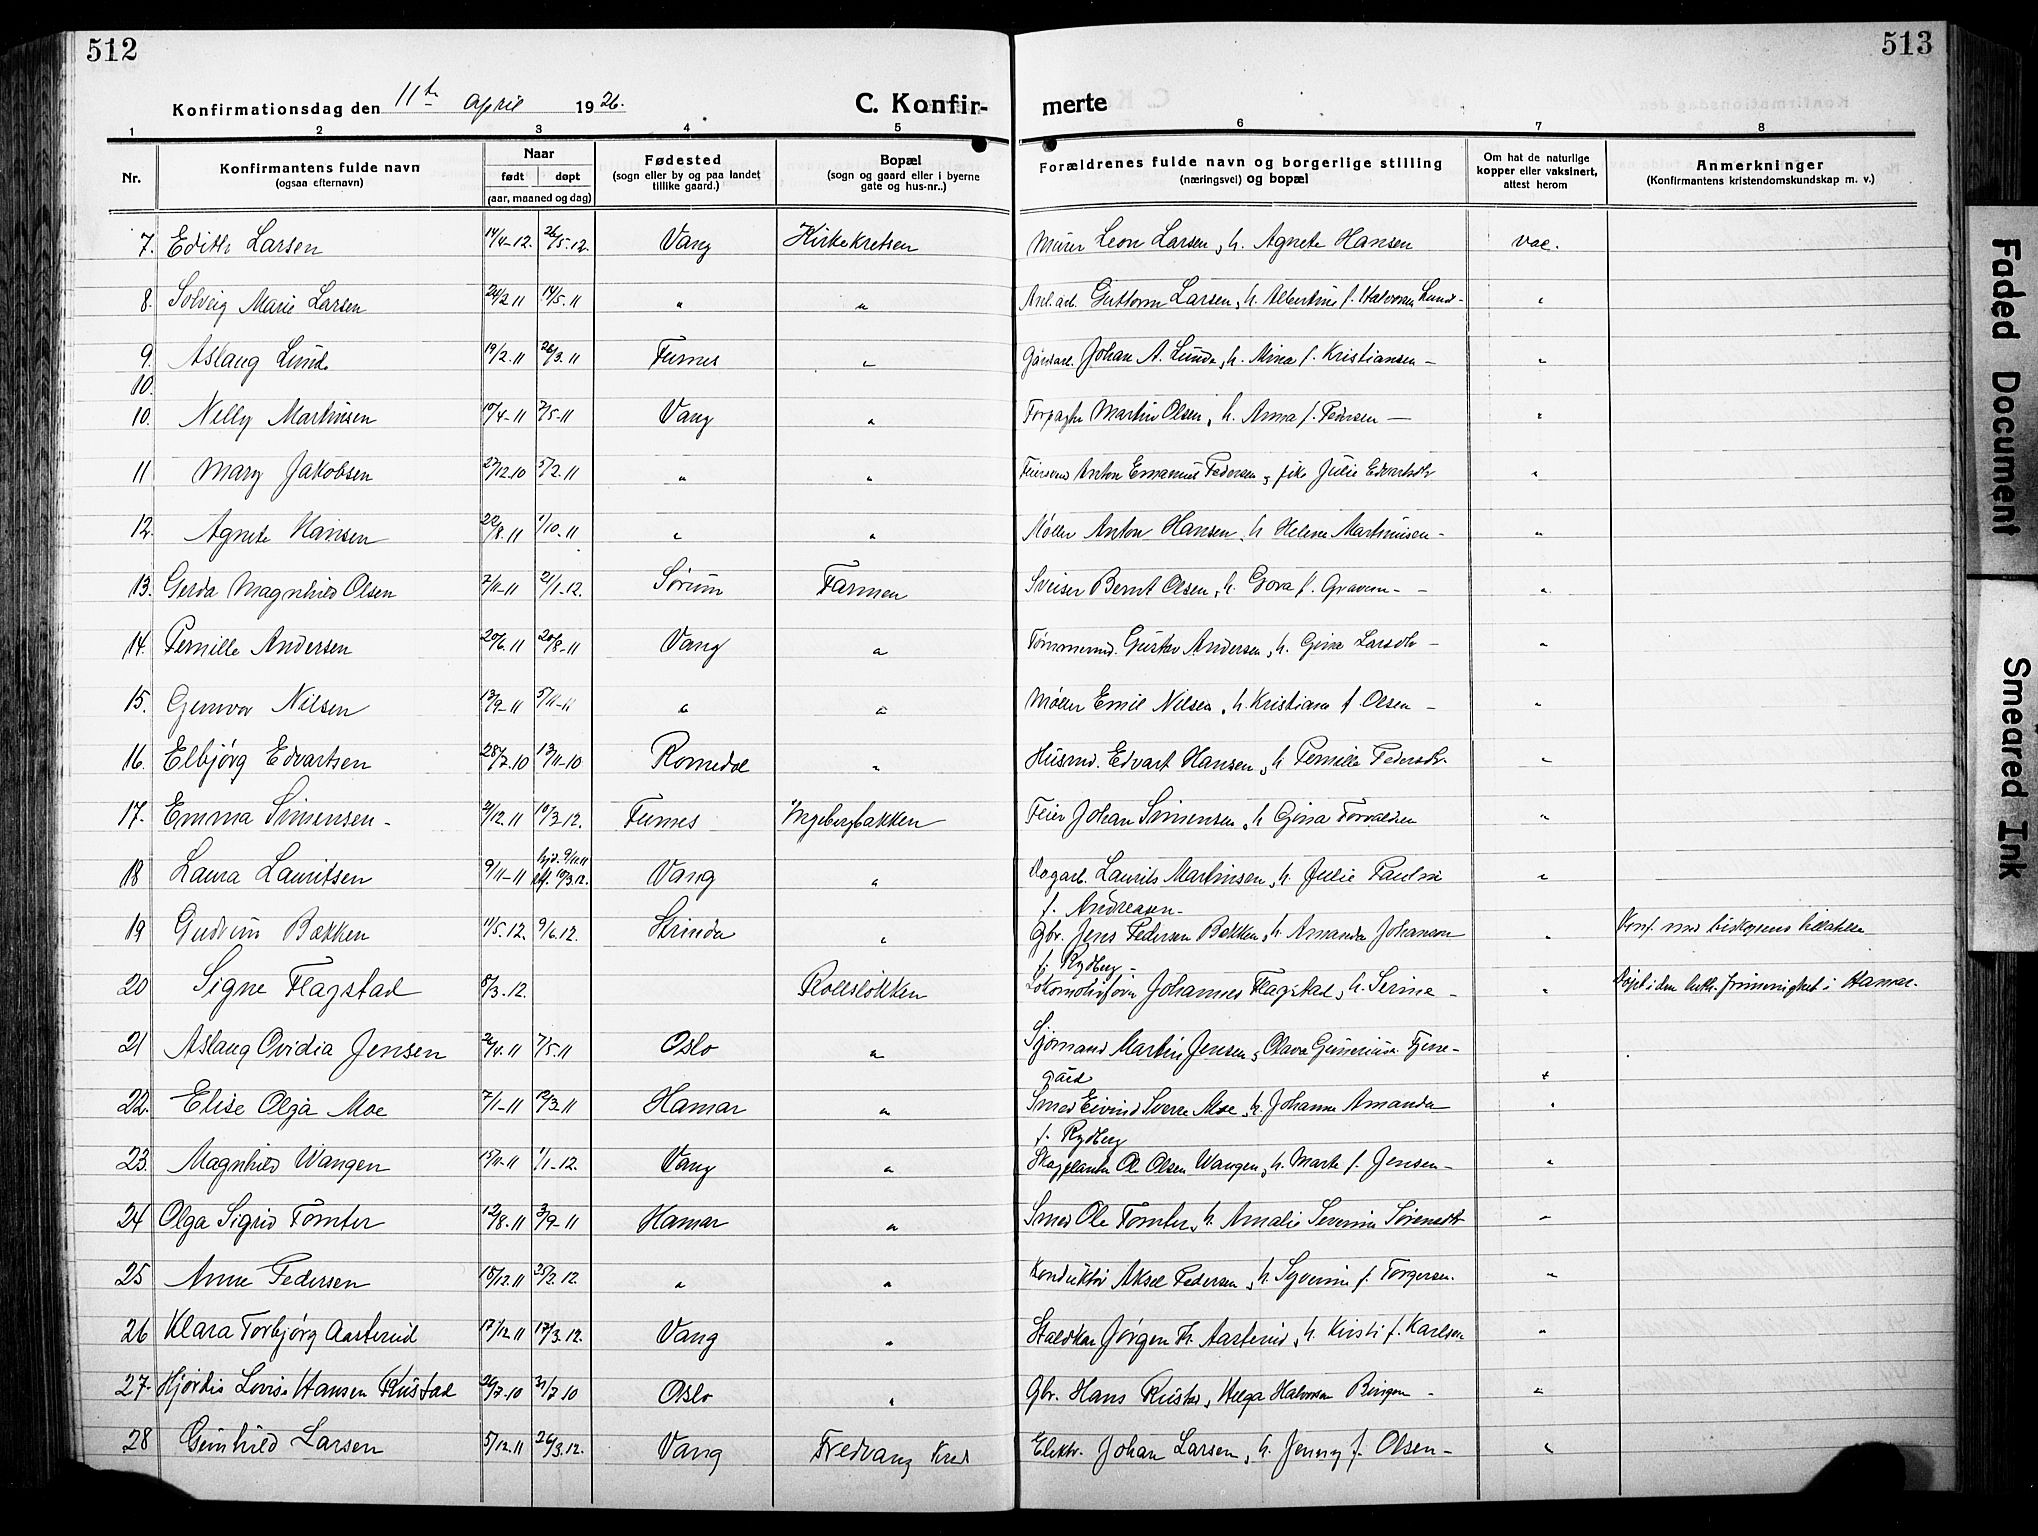 512
513
Konfirmationsdag den 11te April 1926.
C. Konfir-
merte
1 2 3 4 5 6 7 8
Nr.
Konfirmantens fulde navn
(ogsaa efternavn)
Naar
født døpt
(aar, maaned og dag)
Fødested
(sogn eller by og paa landet
tillike gaard.)
Bopæl
(sogn og gaard eller i byerne
gate og hus-nr..)
Forældrenes fulde navn og borgerlige stilling
(næringsvei) og bopæl
Om hat de naturlige
kopper eller vaksinert,
attest herom
Anmerkninger
(Konfirmantens kristendomskundskap m. v.)
7. Edith Larsen 14/4-12. 26/5-12. Vang Kirkekretsen Murer Leon Larsen, h. Agnete Hansen vac.
8. Solveig Marie Larsen 24/2 11 14/5-11 " " Guttorm Larsen, h. Albertine f. Halvorsen Lund- "
9. Aslaug Lund 19/2-11 26/3 11 Furnes " Gårdsarb. Johan A. Lunde, h. Mina f. Kristiansen - "
10.
10. Nelly Martinsen 10/4-11 7/5-11 Vang " Forpagter Martin Olsen, h. Anna f. Pedersen - "
11 Mary Jakobsen 27/12.10 5/2.11 " " Anton Emanuel Pedersen, pike Julie Edvartsdtr "
12. Agnete Hansen 22/8.11 1/10-11 " " Møller Anton Hansen, h. Helene Martinusen - "
13. Gerda Magnhild Olsen 7/11-11 21/1-12. Sørum Farmen Sveiser Bernt Olsen, h. Gova f. Gravem - - "
14. Pernille Andersen 20/6.11 20/8-11 Vang " Tømmermd. Gustav Andersen, h. Gina Larsdtr - "
15. Gunvor Nilsen 13/9-11 5/11-11 " " Møller Emil Nilsen, h. Kristiane f. Olsen - "
16. Elbjørg Edvartsen 28/7.10 13/11-10 Romedal " Husmd. Edvart Hansen, h. Pernille Pedersdtr. "
17. Emma Simensen - 2/12.11 10/3.12. Furnes Ingebergbakken Feier Johan Simensen, h. Gina Torvaldsen "
18 Laura Lauritsen 9/11-11 hjd. 9/11.11 stf. 10/3.12. Vang " Dagarb. Laurits Martinsen, h. Julie Pauline "
f. Andreasen-
19 Gudrun Bakken 11/5.12. 9/6.12. Strinda " Gbr. Jens Pedersen Bakken, h. Amanda Johanson " Konf. med biskopens tillatelse
f. Rydberg -
20 Signe Flagstad 8/3.12. Rollsløkken Lokomotivfører Johannes Flagstad, h. Serine - " Døpt i den luth. frimenighet i Hamar.
21 Aslaug Ovidia Jensen 2/4.11 7/5.11 Oslo " Sjømand Martin Jensen, Olava Gunerius. Fjene-
gård "
22. Elise Olga Moe 7/1-11 12/3.11 Hamar " Smed Eivind Sverre Moe, h. Johanna Amanda "
f. Rydberg
23. Magnhild Wangen 15/11-11 1/1-12. Vang " Ole Olsen Wangen, h. Marte f. Jensen - "
24 Olga Sigrid Tomter 12/8.11 3/9.11 Hamar " Smed Ole Tomter, h. Amalie Severine Sørensdtr "
25 Anne Pedersen 18/12.11 25/2.12. " " Konduktør Aksel Pedersen, h. Syverine f. Torgersen. "
26 Klara Torbjørg Aasterud 17/12.11 17/3.12. Vang " Staldkar Jørgen Fr. Aasterud, h. Kirsti f. Karlsen "
27. Hjørdis Lovise Hansen Rustad 26/7.10 31/7.10 Oslo " Gbr. Hans Rustad, Helga Halvorsen Bingen - "
28 Gunhild Larsen 5/12.11 26/3.12. Vang Fredvang Elektr. Johan Larsen, h. Jenny f. Olsen - "
Faded Document
Smeared Ink